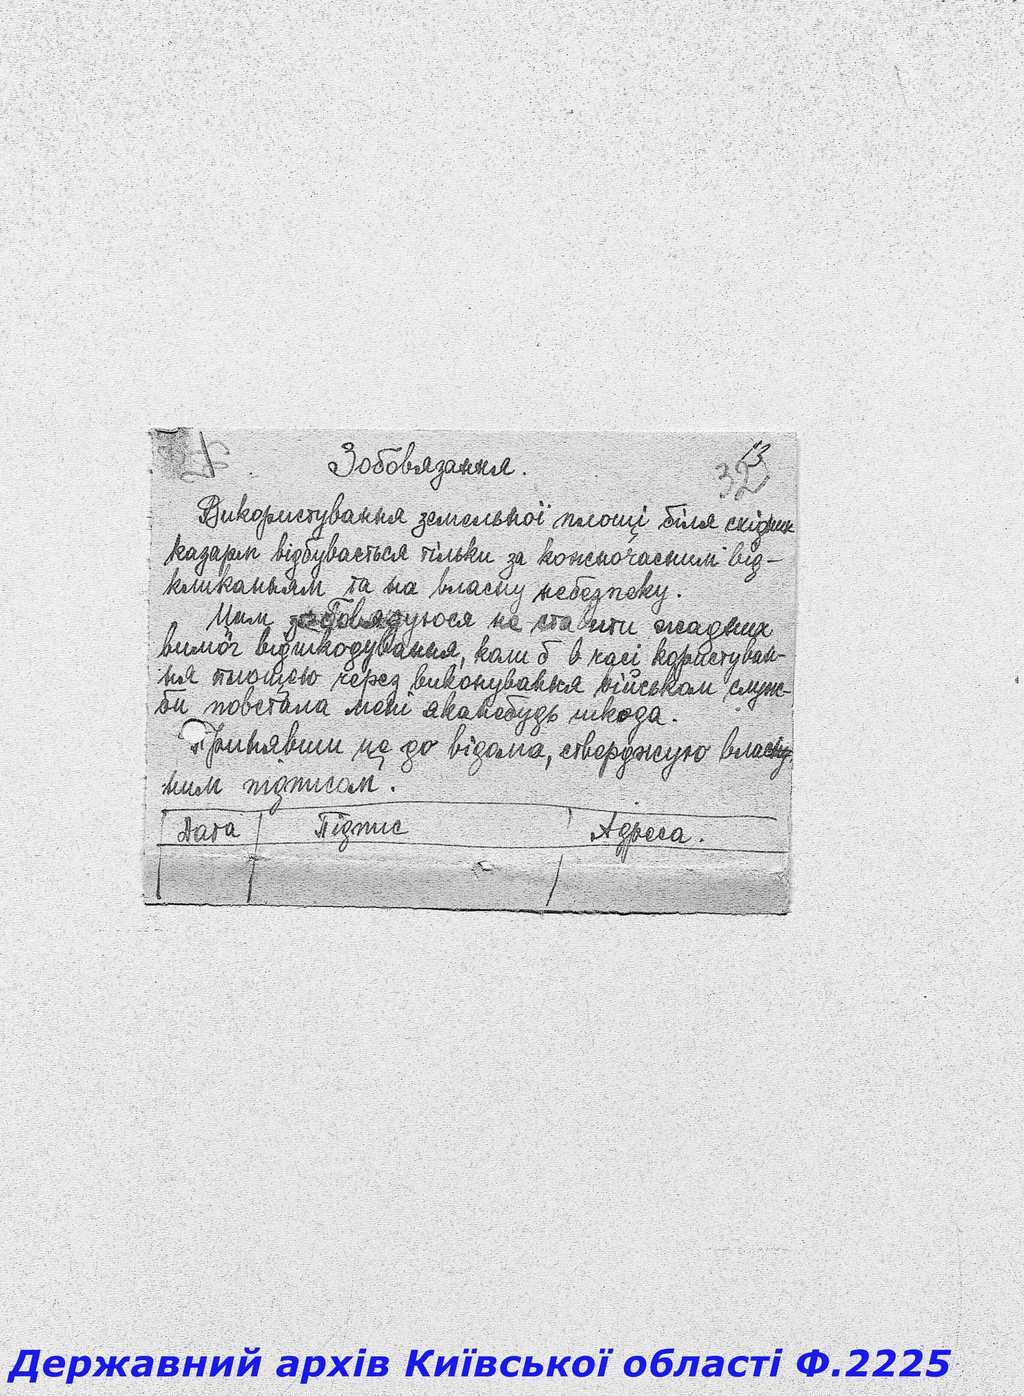 13
32
Зобовязання.
Використування земельної площі біля східних
казарм відбувається тільки за кожночасним від-
кликаньям та на власну небезпеку.
Цим зобовязуюся не ставити жадних
вимог відшкодування, коли б в часі користуван-
ня площею через виконування військом служ-
би повстала мені яканебудь шкода.
Принявши це до відома, стверджую власну
ним підписом.
Дата Підпис Адреса.
Державний архів Київської області Ф.2225